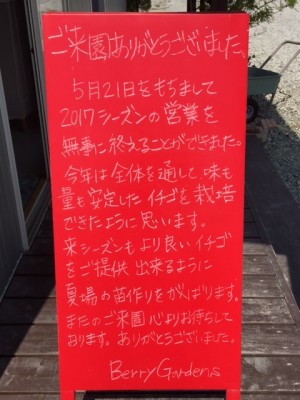 ご来園ありがとうございました。
5月21日をもちまして
2017シーズンの営業を
無事に終えることができました。
今年は全体を通して、味も
量も安定したイチゴを栽培
できたように思います。
来シーズンもより良いイチゴ
をご提供出来るように
夏場の苗作りをがんばります。
またのご来園心よりお待ちして
おります。ありがとうございました。
Berry Gardens